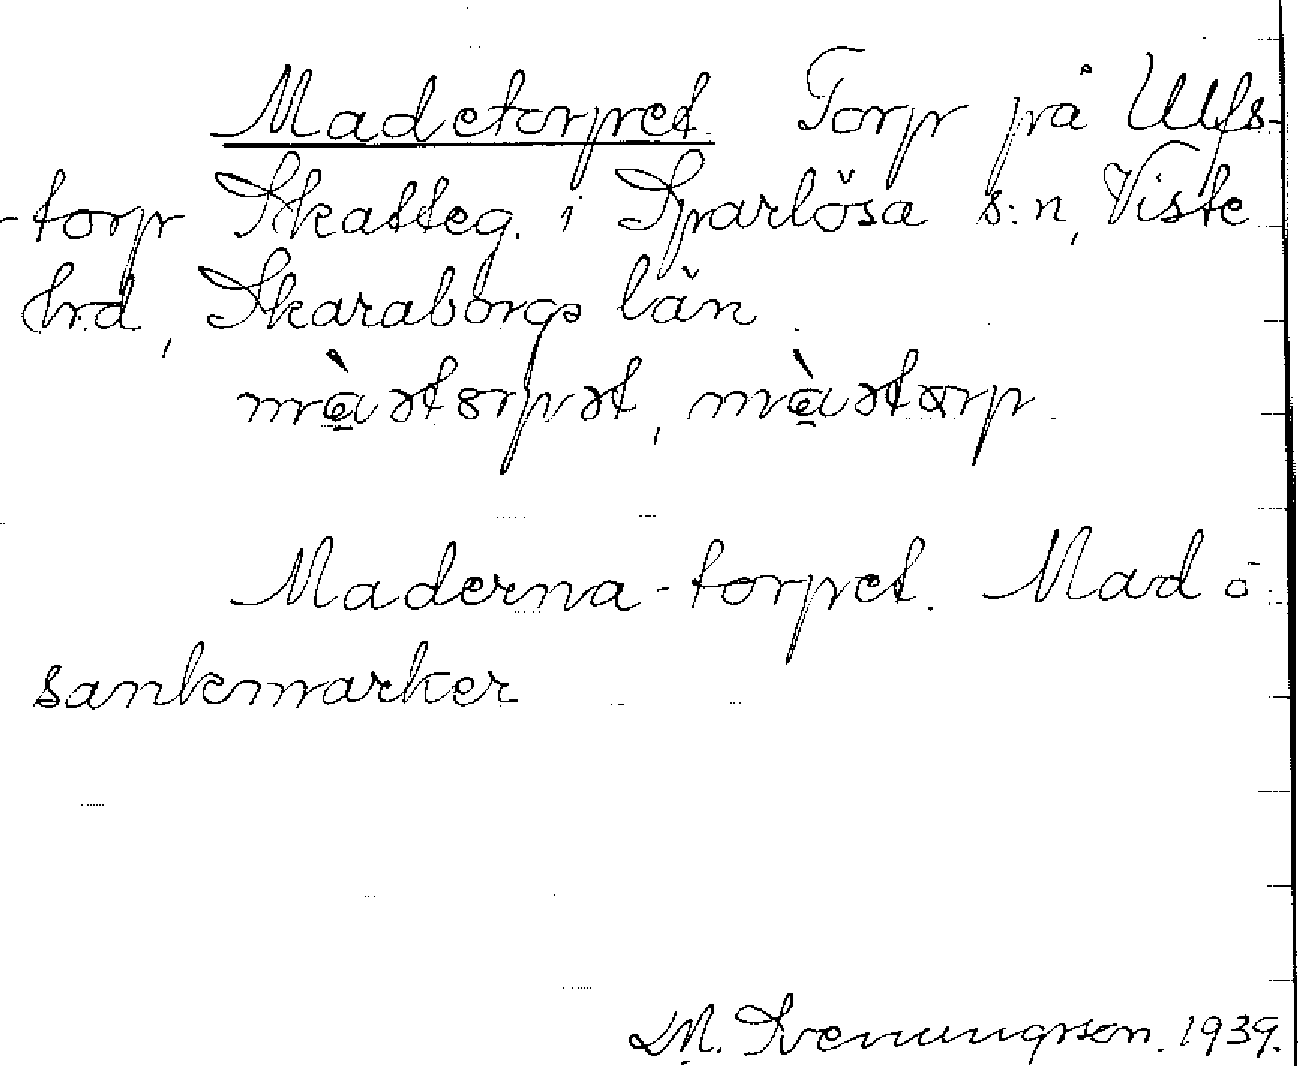 Madetorpet. Torp på Ulfs-
-torp Skatteg. i Sparlösa s:n, Viste
hrd, Skaraborgs län.
màətorpət, màətorp.
Maderna-torpet. Mad =
sankmarker
M. Svenungsson. 1939.